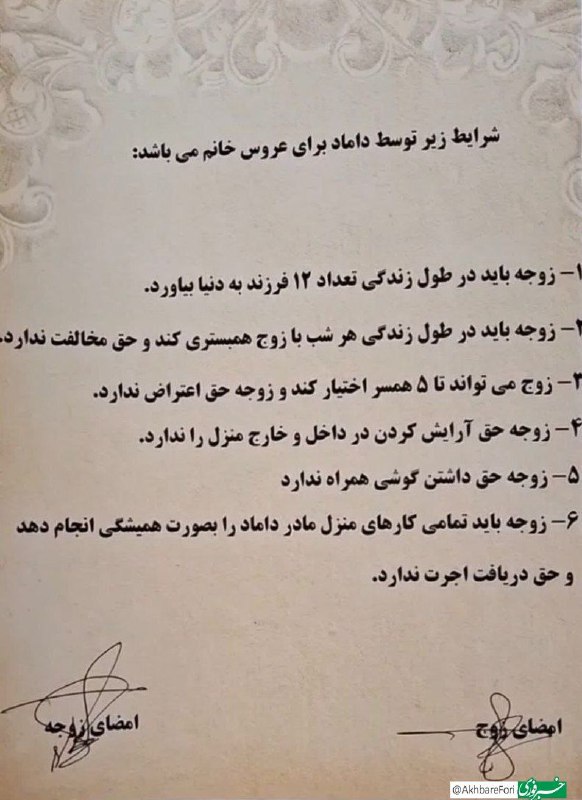 شرایط زیر توسط داماد برای عروس خانم می باشد:
۱- زوجه باید در طول زندگی تعداد ۱۲ فرزند به دنیا بیاورد.
۲- زوجه باید در طول زندگی هر شب با زوج همبستری کند و حق مخالفت ندارد.
۳- زوج می تواند تا ۵ همسر اختیار کند و زوجه حق اعتراض ندارد.
۴- زوجه حق آرایش کردن در داخل و خارج منزل را ندارد.
۵- زوجه حق داشتن گوشی همراه ندارد
۶- زوجه باید تمامی کارهای منزل مادر داماد را بصورت همیشگی انجام دهد
و حق دریافت اجرت ندارد.
امضای زوج
امضای زوجه
@AkhbareFori خبرفوری